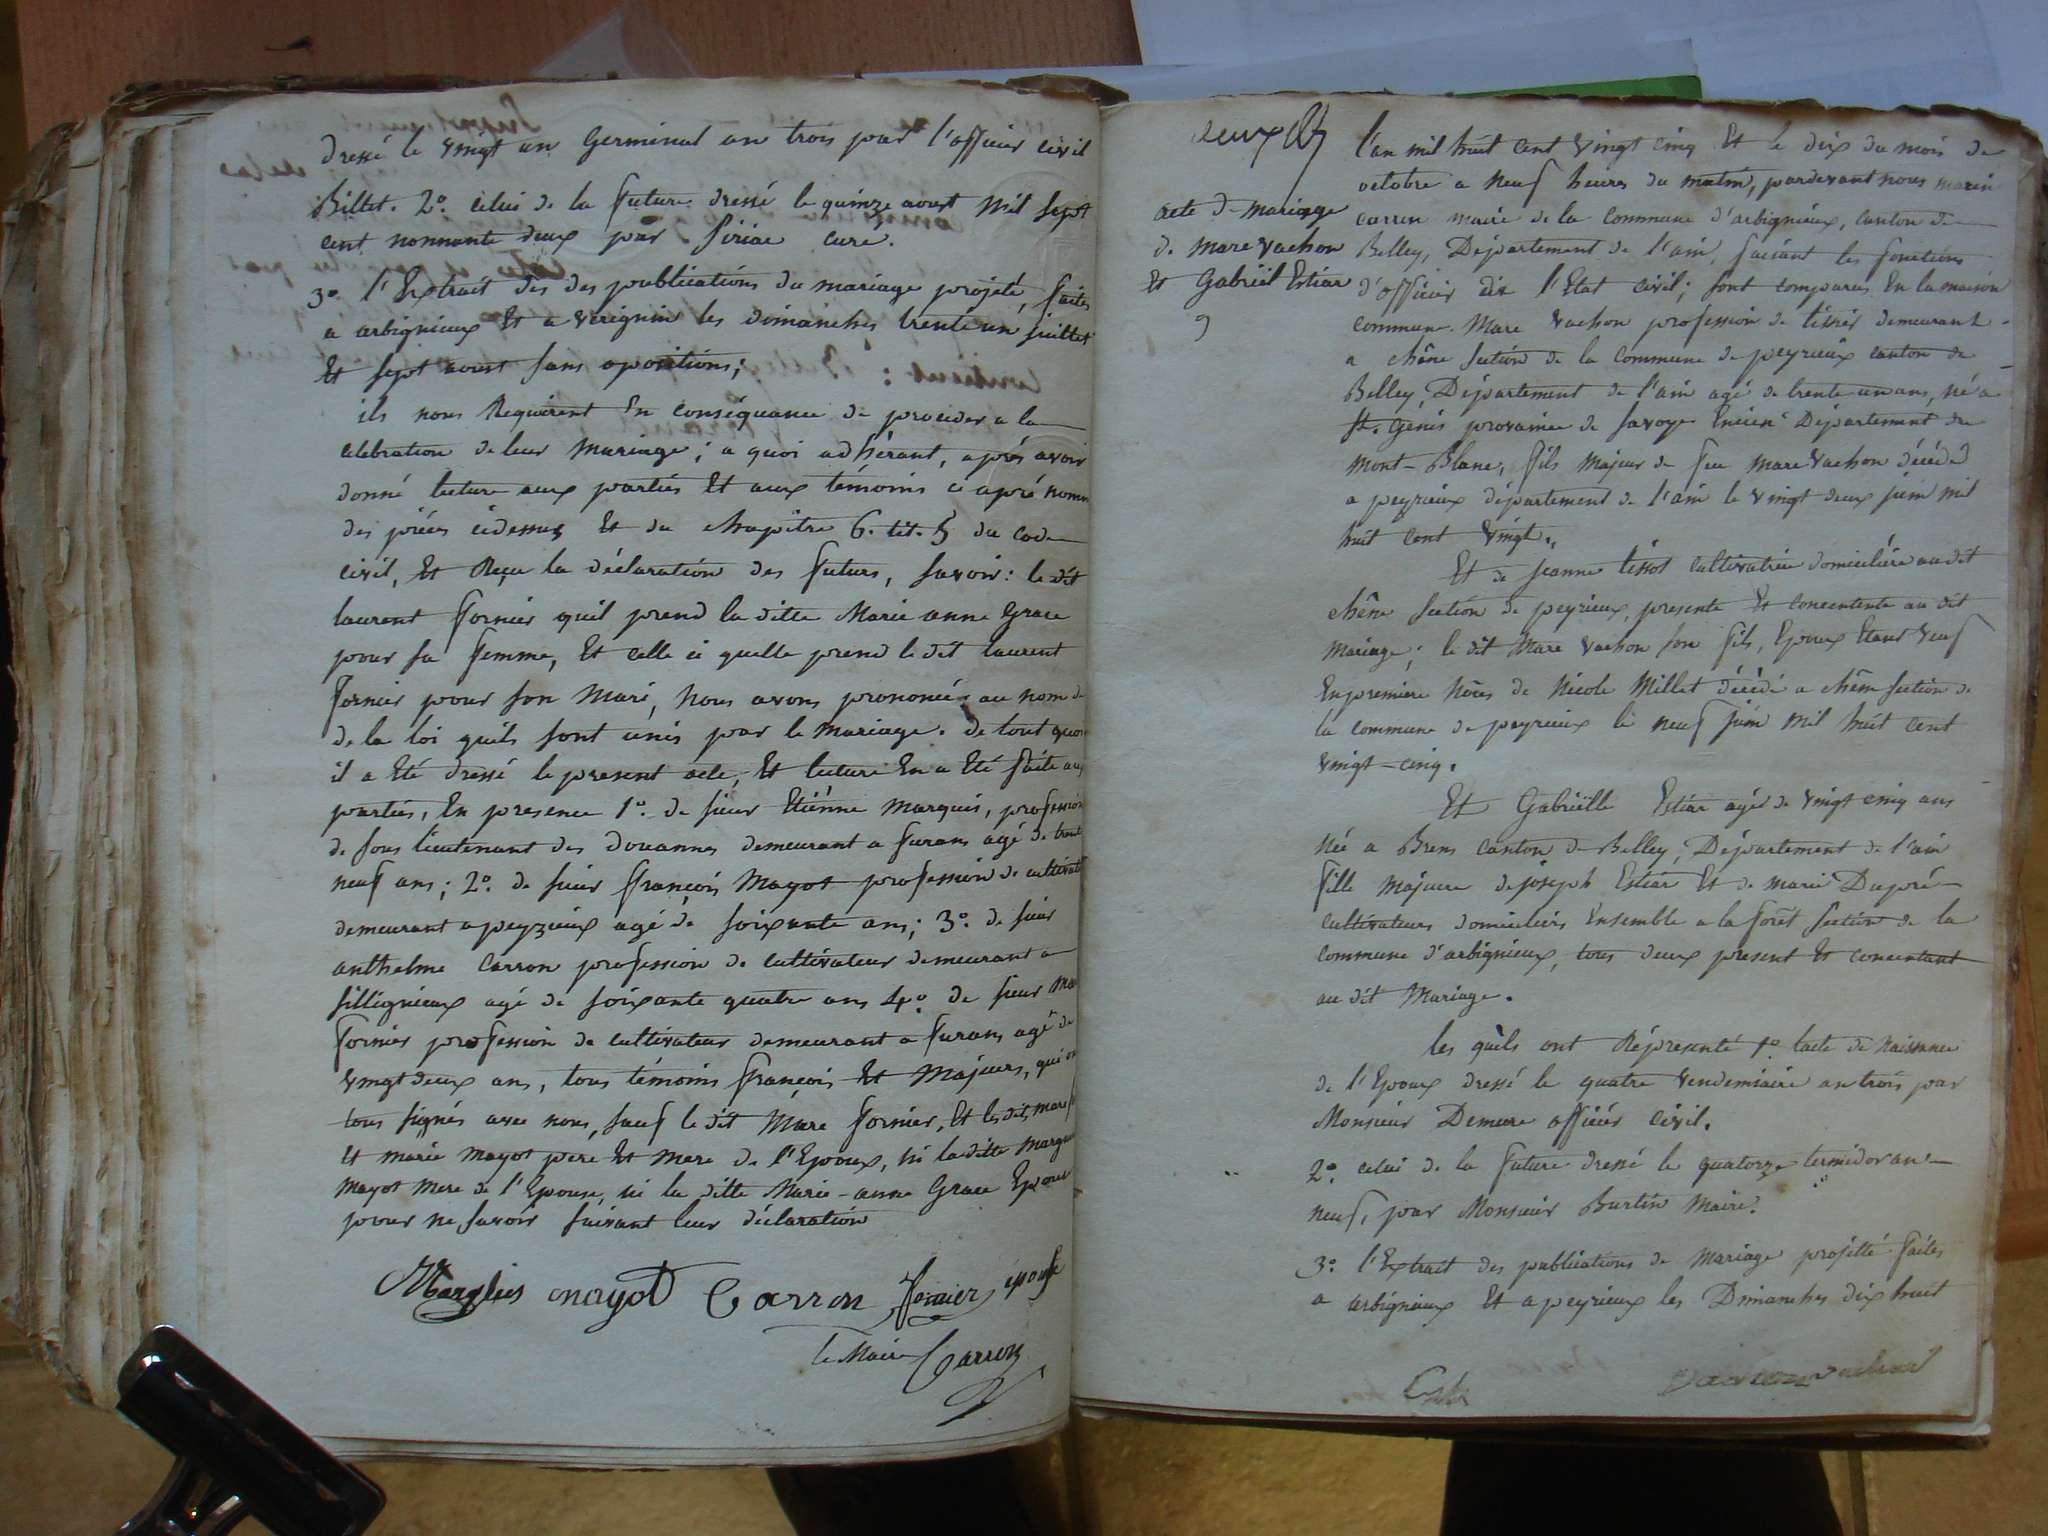 dressé le vingt un Germinal an trois par l'officier civil
Billet. 2o. celui de la future dressé le quinze aoust mil sept
cent nonnante deux par Siriac curé.
3o l'Extrait des des publications du mariage projeté, faites
a arbignieux Et a virignin les dimanches trente un juillet
Et sept aoust sans opositions;
ils nous Requierent En conséquance de proceder a la
celebration de leur mariage; a quoi adhérant, aprés avoir
donné lecture aux parties Et aux témoins ci aprés nomm
des piéces cidessus Et du chapitre 6. tit. 5 du code
civil, Et Reçu la déclaration des futurs, savoir: le dit
laurent fornier quil prend la ditte Marie anne Grace
pour sa femme, Et celle ci quelle prend le dit laurent
fornier pour son mari, nous avons prononcé au nom de
de la loi quils sont unis par le mariage. de tout quoi
il a Eté dressé le present acte, Et lecture En a Eté faite aux
parties, En presence 1o. de sieur Etiénne Marquis, profession
de sous lieutenant des douannes demeurant a furans agé de trente
neuf ans; 2o. de sieur françois Mayot profession de cultivate
demeurant a peyzieux agé de soixante ans; 3o. de sieur
anthelme Carron profession de cultivateur demeurant a
sillignieux agé de soixante quatre ans 4o. de sieur Mar
fornier profession de cultivateur demeurant a furans agé de
vingt deux ans, tous témoins françois Et Majeurs, qui on
tous signés avec nous, sauf le dit Marc fornier, Et les dits marc f
Et marie mayot pere Et mere de l'Epoux, ni la ditte margue
mayot mere de l'Epouse, ni la ditte Marie-anne Grace Epouse
pour ne savoir suivant leur déclaration
Marquis mayot Carron fornier époux
le Maire Carron
deux
acte de mariage
de marc vachon
Et Gabriel Estiar
9
l'an mil huit cent vingt cinq Et le dix du mois de
octobre a neuf heures du matin, pardevant nous marin
carron maire de la commune d'arbignieux, canton de
Belley, Département de l'ain, faisant les fonctions
d'officier de l'Etat civil; sont comparus En la maison
commune. Marc vachon profession de tisser demeurant
a chêne section de la commune de peyrieux canton de
Belley, Département de l'ain agé de trente un ans, né a
St. Genis provaince de savoye Encien Département du
Mont-Blanc, fils majeur de feu marc vachon décédé
a peyrieux département de l'ain le vingt deux juin mil
huit cent vingt.
Et de jeanne tissot cultivatrice domiciliée au dit
chêne section de peyrieux, presente Et concentente au dit
mariage; le dit Marc vachon son fils, Epoux Etant veuf
En premiere nôces de Nicole Millet décédé a chêne section de
la commune de peyrieux le neuf juin mil huit cent
vingt-cinq.
Et Gabriëlle Estiar agée de vingt cinq ans
née a Brens canton de Belley, Département de l'ain
fille majeure de joseph Estiar Et de marie Dupré
cultivateurs domiciliés Ensemble a la forêt section de la
commune d'arbignieux, tous deux present Et concentant
au dit Mariage.
les quels ont Représenté 1o. l'acte de Naissance
de l'Epoux dressé le quatre vendemiaire an trois par
Monsieur Demeure officiér civil.
2o. celui de la future dressé le quatorze termidor an
neuf, par Monsieur Burtin Maire.
3o. l'Extrait des publications de mariage projetté faites
a arbignieux Et a peyrieux les Dimanches dix huit